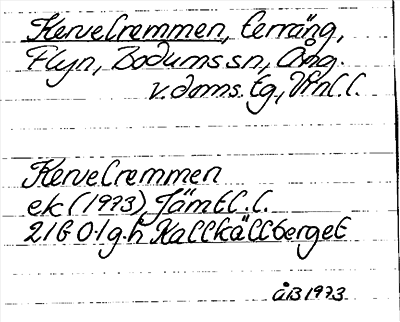 Kervelremmen, terräng,
Flyn, Bodums sn, Ång.
v. doms. tg, Vnl. l.
Kervelremmen
ek (1973) Jämtl. l.
21G 0-1 g.h Kallkällberget
ÅB 1973